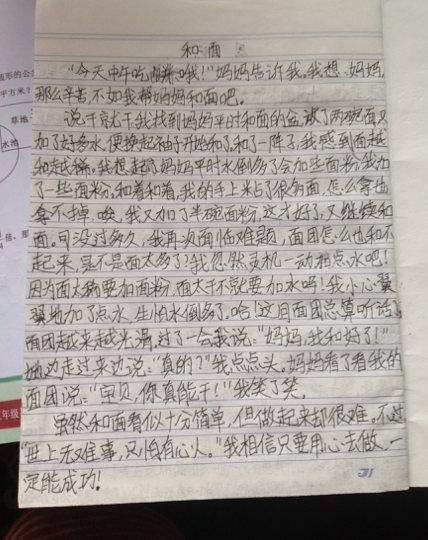 和面
“今天中午吃酥和我!”妈妈告诉我。我想,妈妈
那么辛苦不如我帮妈妈和面吧。
说干就干我找到妈妈平时和面的盆,放了两碗面又
加了好多水,便挽起袖子开始和了,和了一阵子,我感到面越
和越稀。我想起了妈妈平时水倒多了会加些面粉,我加
了一些面粉,和着和着,我的手上粘了很多面,怎么拿也
拿不掉,唉,我又加了半碗面粉,这才好了,又继续和
面。可没过多久,我再次面临难题,面团怎么也和不
起来,是不是面太多了?我忽然灵机一动,加点水吧!
因为面太稀要加面粉,面太干不就要加水吗!我小心翼
翼地加了点水,生怕水倒多了,哈!这时面团总算听话了
面团越来越光滑,过了一会我说:“妈妈,我和好了!”
她边走过来边说:“真的?”我点点头。妈妈看了看我的
面团说:“宝贝,你真能干!”我笑了笑。
虽然和面看似十分简单,但做起来却很难。不过
“世上无难事,只怕有心人。”我相信只要用心去做,一
定能成功!
31
草地
水池
年级